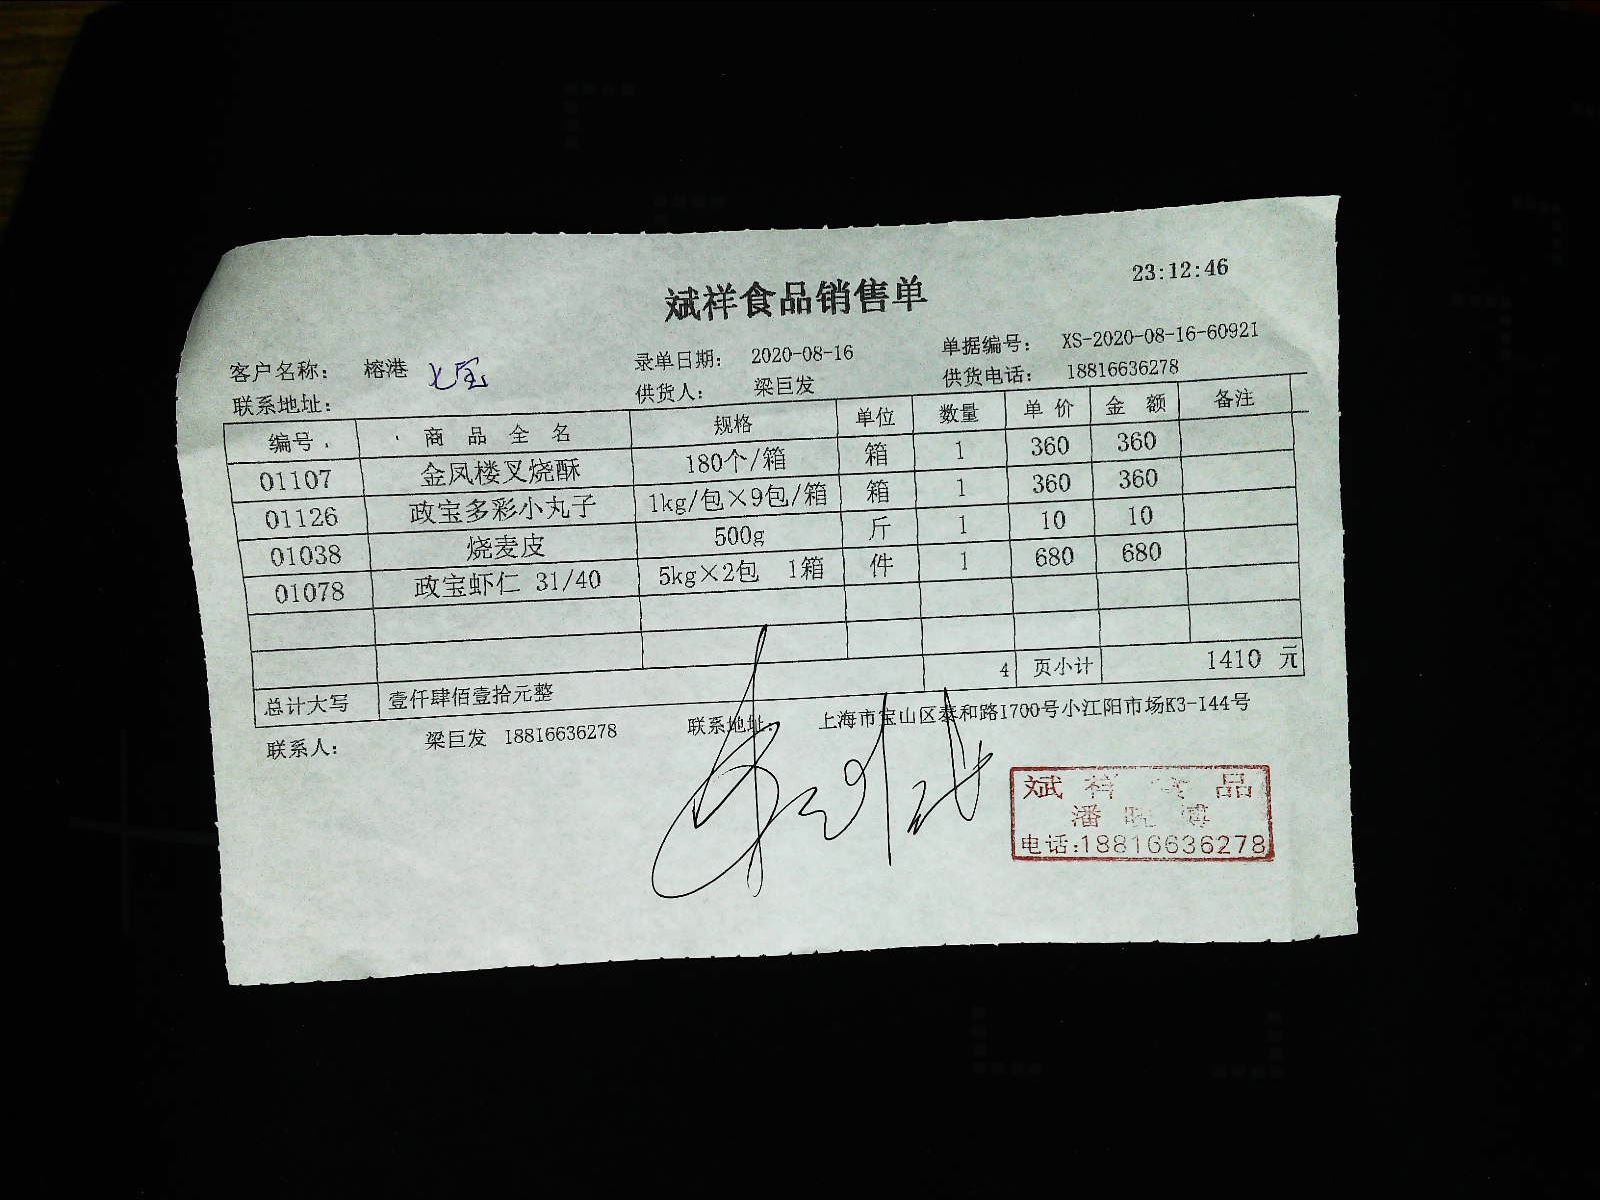 23:12:46
斌祥食品销售单
客户名称： 榕港 七宝 录单日期： 2020-08-16 单据编号： XS-2020-08-16-60921
联系地址： 供货人： 梁巨发 供货电话： 18816636278
编号 商品全名 规格 单位 数量 单价 金额 备注
01107 金凤楼叉烧酥 180个/箱 箱 1 360 360
01126 政宝多彩小丸子 1kg/包×9包/箱 箱 1 360 360
01038 烧麦皮 500g 斤 1 10 10
01078 政宝虾仁 31/40 5kg×2包 1箱 件 1 680 680
4 页小计 1410 元
总计大写 壹仟肆佰壹拾元整
联系人： 梁巨发 18816636278 联系地址： 上海市宝山区泰和路1700号小江阳市场K3-144号
斌祥食品
潘
电话:18816636278